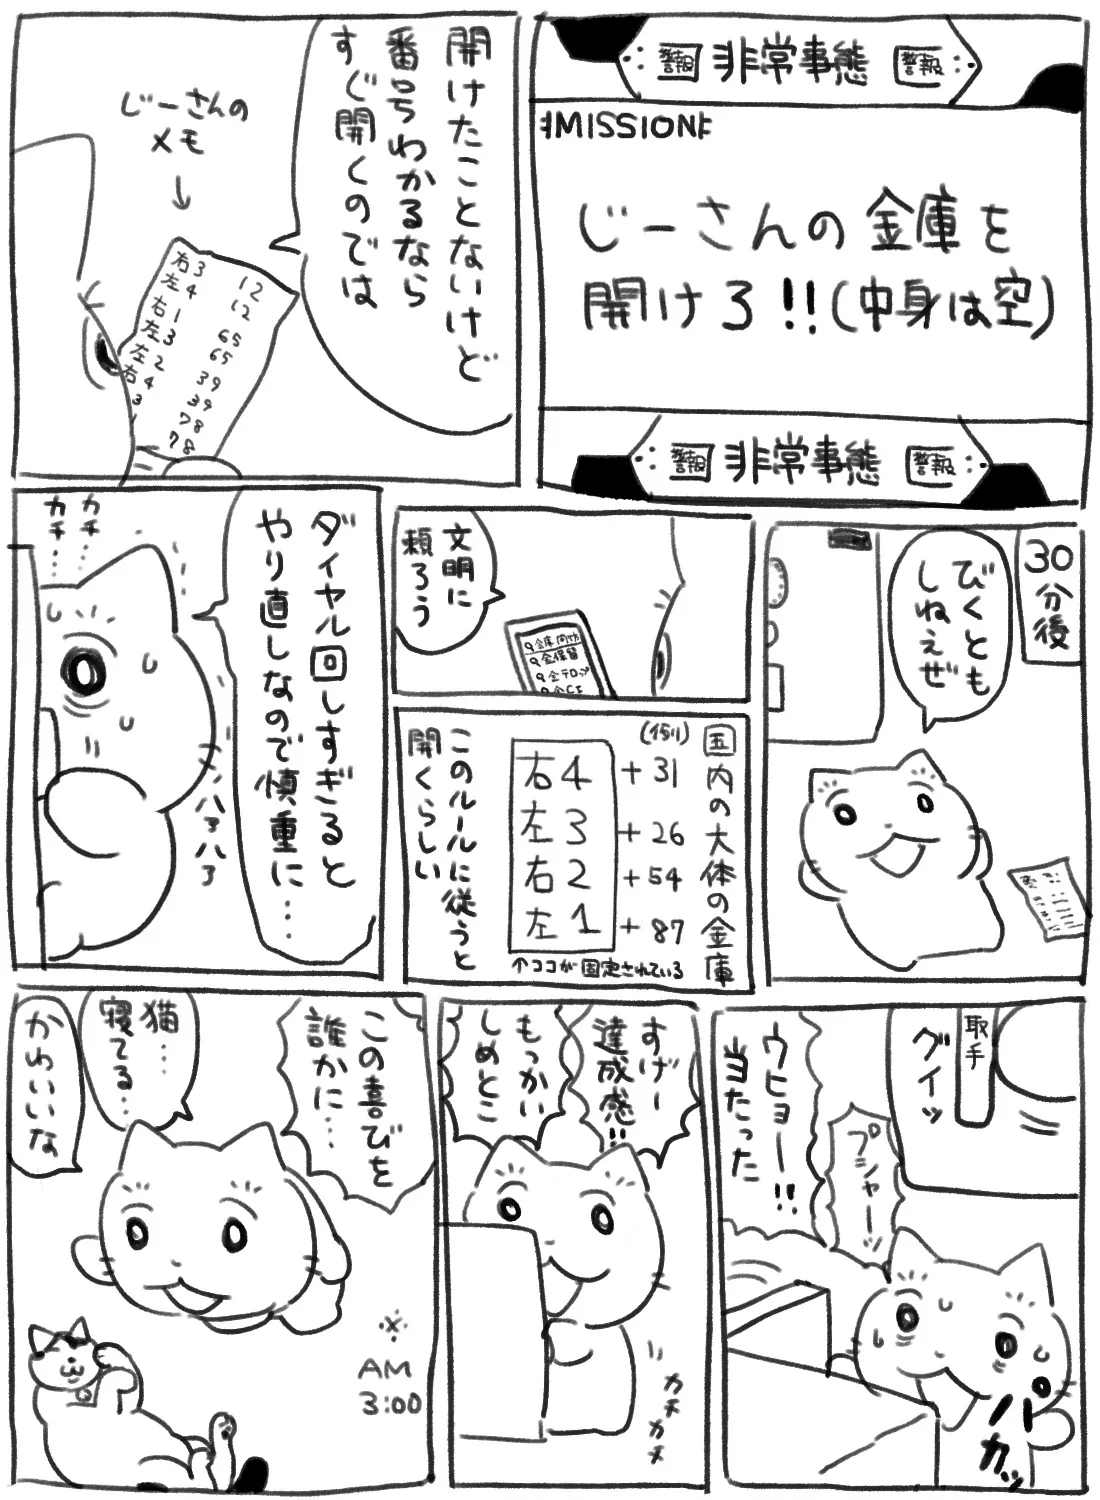 警報 非常事態 警報
MISSION
じーさんの金庫を
開けろ!!(中身は空)
警報 非常事態 警報
開けたことないけど
番号わかるなら
すぐ開くのでは
じーさんの
メモ
↓
右3 12
左4 12
右1 65
左3 65
左2 39
右4 39
3 78
1 78
30分後
びくとも
しねえぜ
文明に
頼ろう
金庫 開かない
金保留
金テロップ
国内の大体の金庫
(例)
右4+31
左3+26
右2+54
左1+87
↑ココが固定されている
このルールに従うと
開くらしい
ダイヤル回しすぎると
やり直しなので慎重に…
カチ…
カチ…
ハァハァ
取手
グイッ
ウヒョー!!
当たった
プシャーッ
パカッ
すげー
達成感!!
もっかい
しめとこ
カチカチ
この喜びを
誰かに…
猫…
寝てる…
かわいいな
AM
3:00